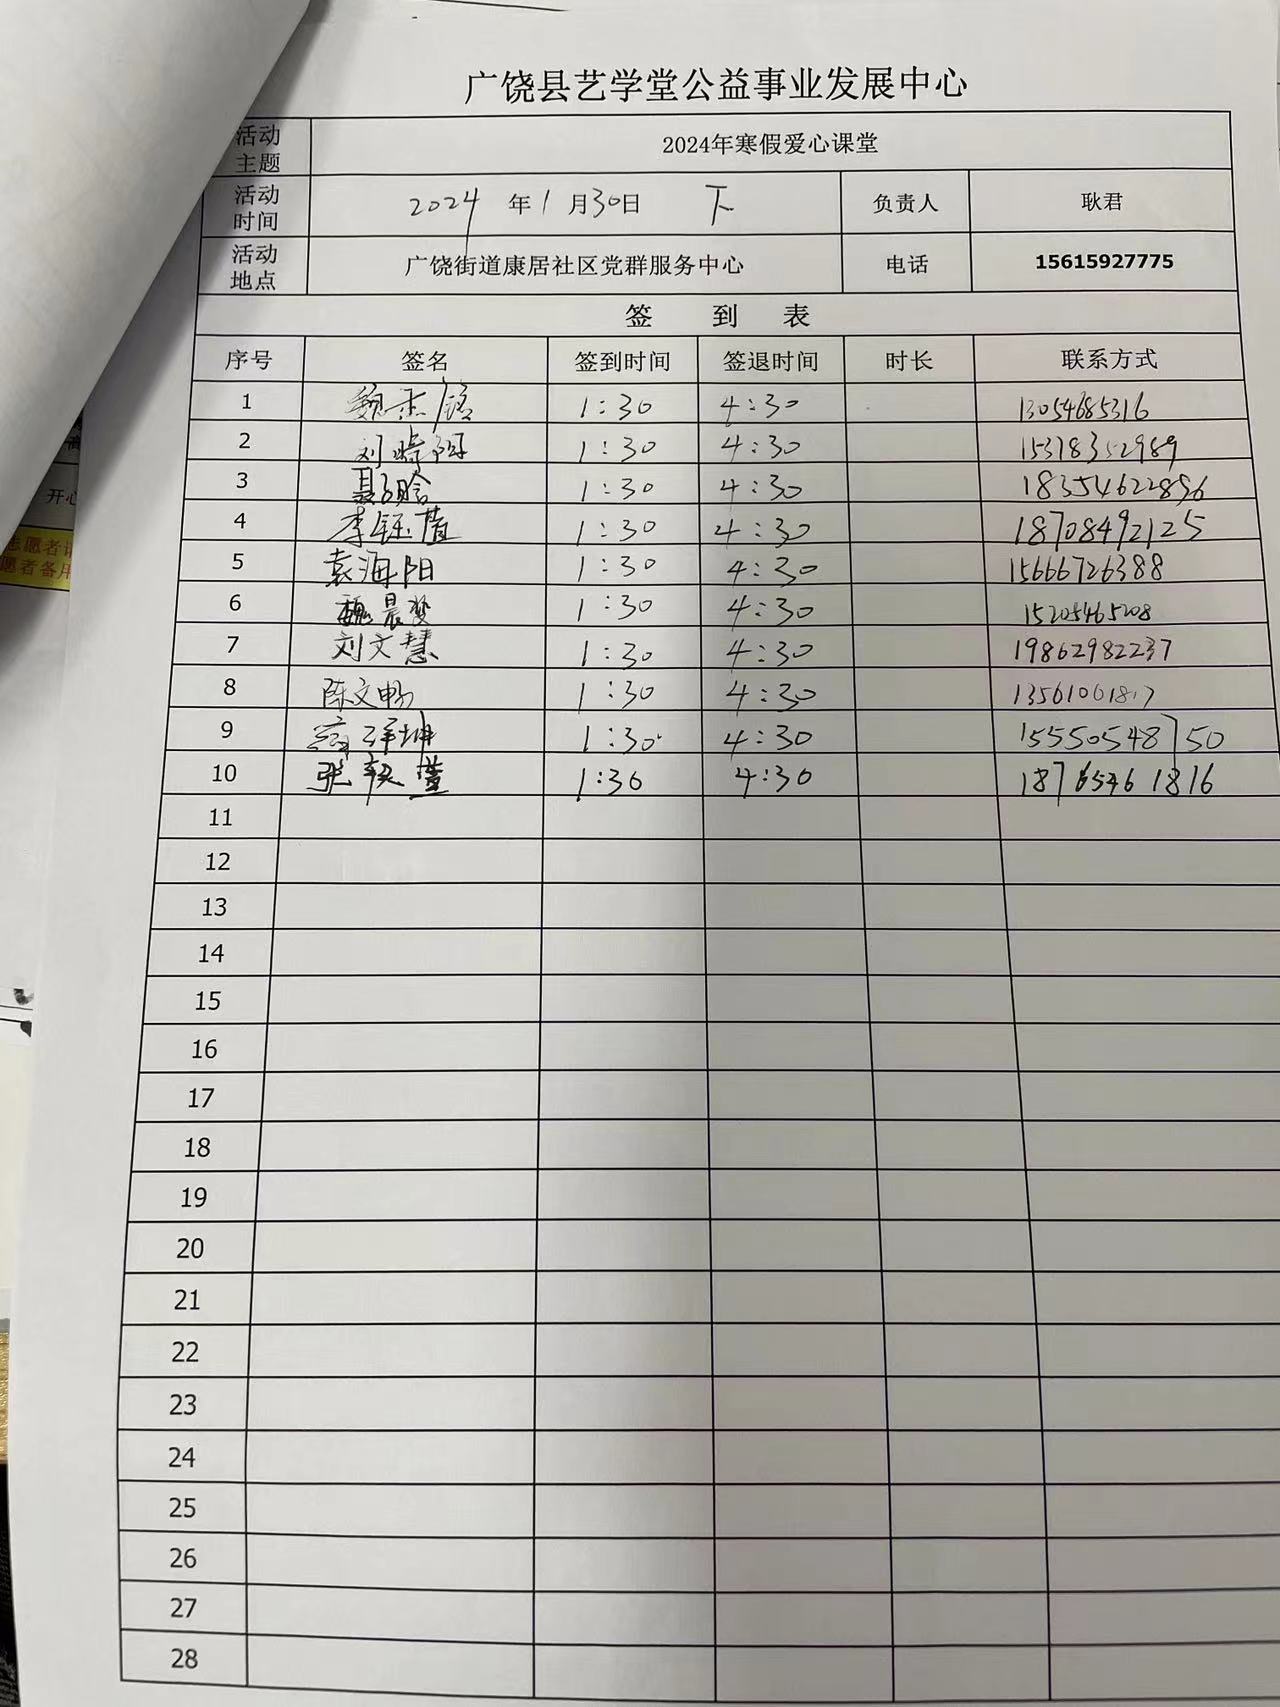 广饶县艺学堂公益事业发展中心
活动主题 2024年寒假爱心课堂
活动时间 2024 年 1 月 30 日 下 负责人 耿君
活动地点 广饶街道康居社区党群服务中心 电话 15615927775
签 到 表
序号 签名 签到时间 签退时间 时长 联系方式
1 魏 1:30 4:30 13054685316
2 刘 1:30 4:30 15318352989
3 聂 1:30 4:30 18354622896
4 李钰萱 1:30 4:30 18708492125
5 袁海阳 1:30 4:30 15666726388
6 魏晨 1:30 4:30 15205465208
7 刘文慧 1:30 4:30 19862982237
8 陈文畅 1:30 4:30
9 1:30 4:30 15550548750
10 张 1:30 4:30 18765461816
11
12
13
14
15
16
17
18
19
20
21
22
23
24
25
26
27
28
开心
志愿者
愿者备用